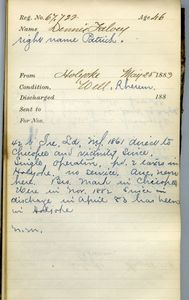 Reg. No. 67,722 Age 46
Name Dennis Falvey
right name Patrick.
From Holyoke May 25 1883
Condition, Well. Rheum.
Discharged 188
Sent to
For Nos.
42 b Ire, Ld, N.Y. 1861 direct to
Chicopee and vicinity since,
Single, operative, pd. 2 taxes in
Holyoke, no service. Aug. never
here. Bro. Mark in Chicopee
Were in Nov. 1882 Since
discharge in April 83 has been
in Holyoke